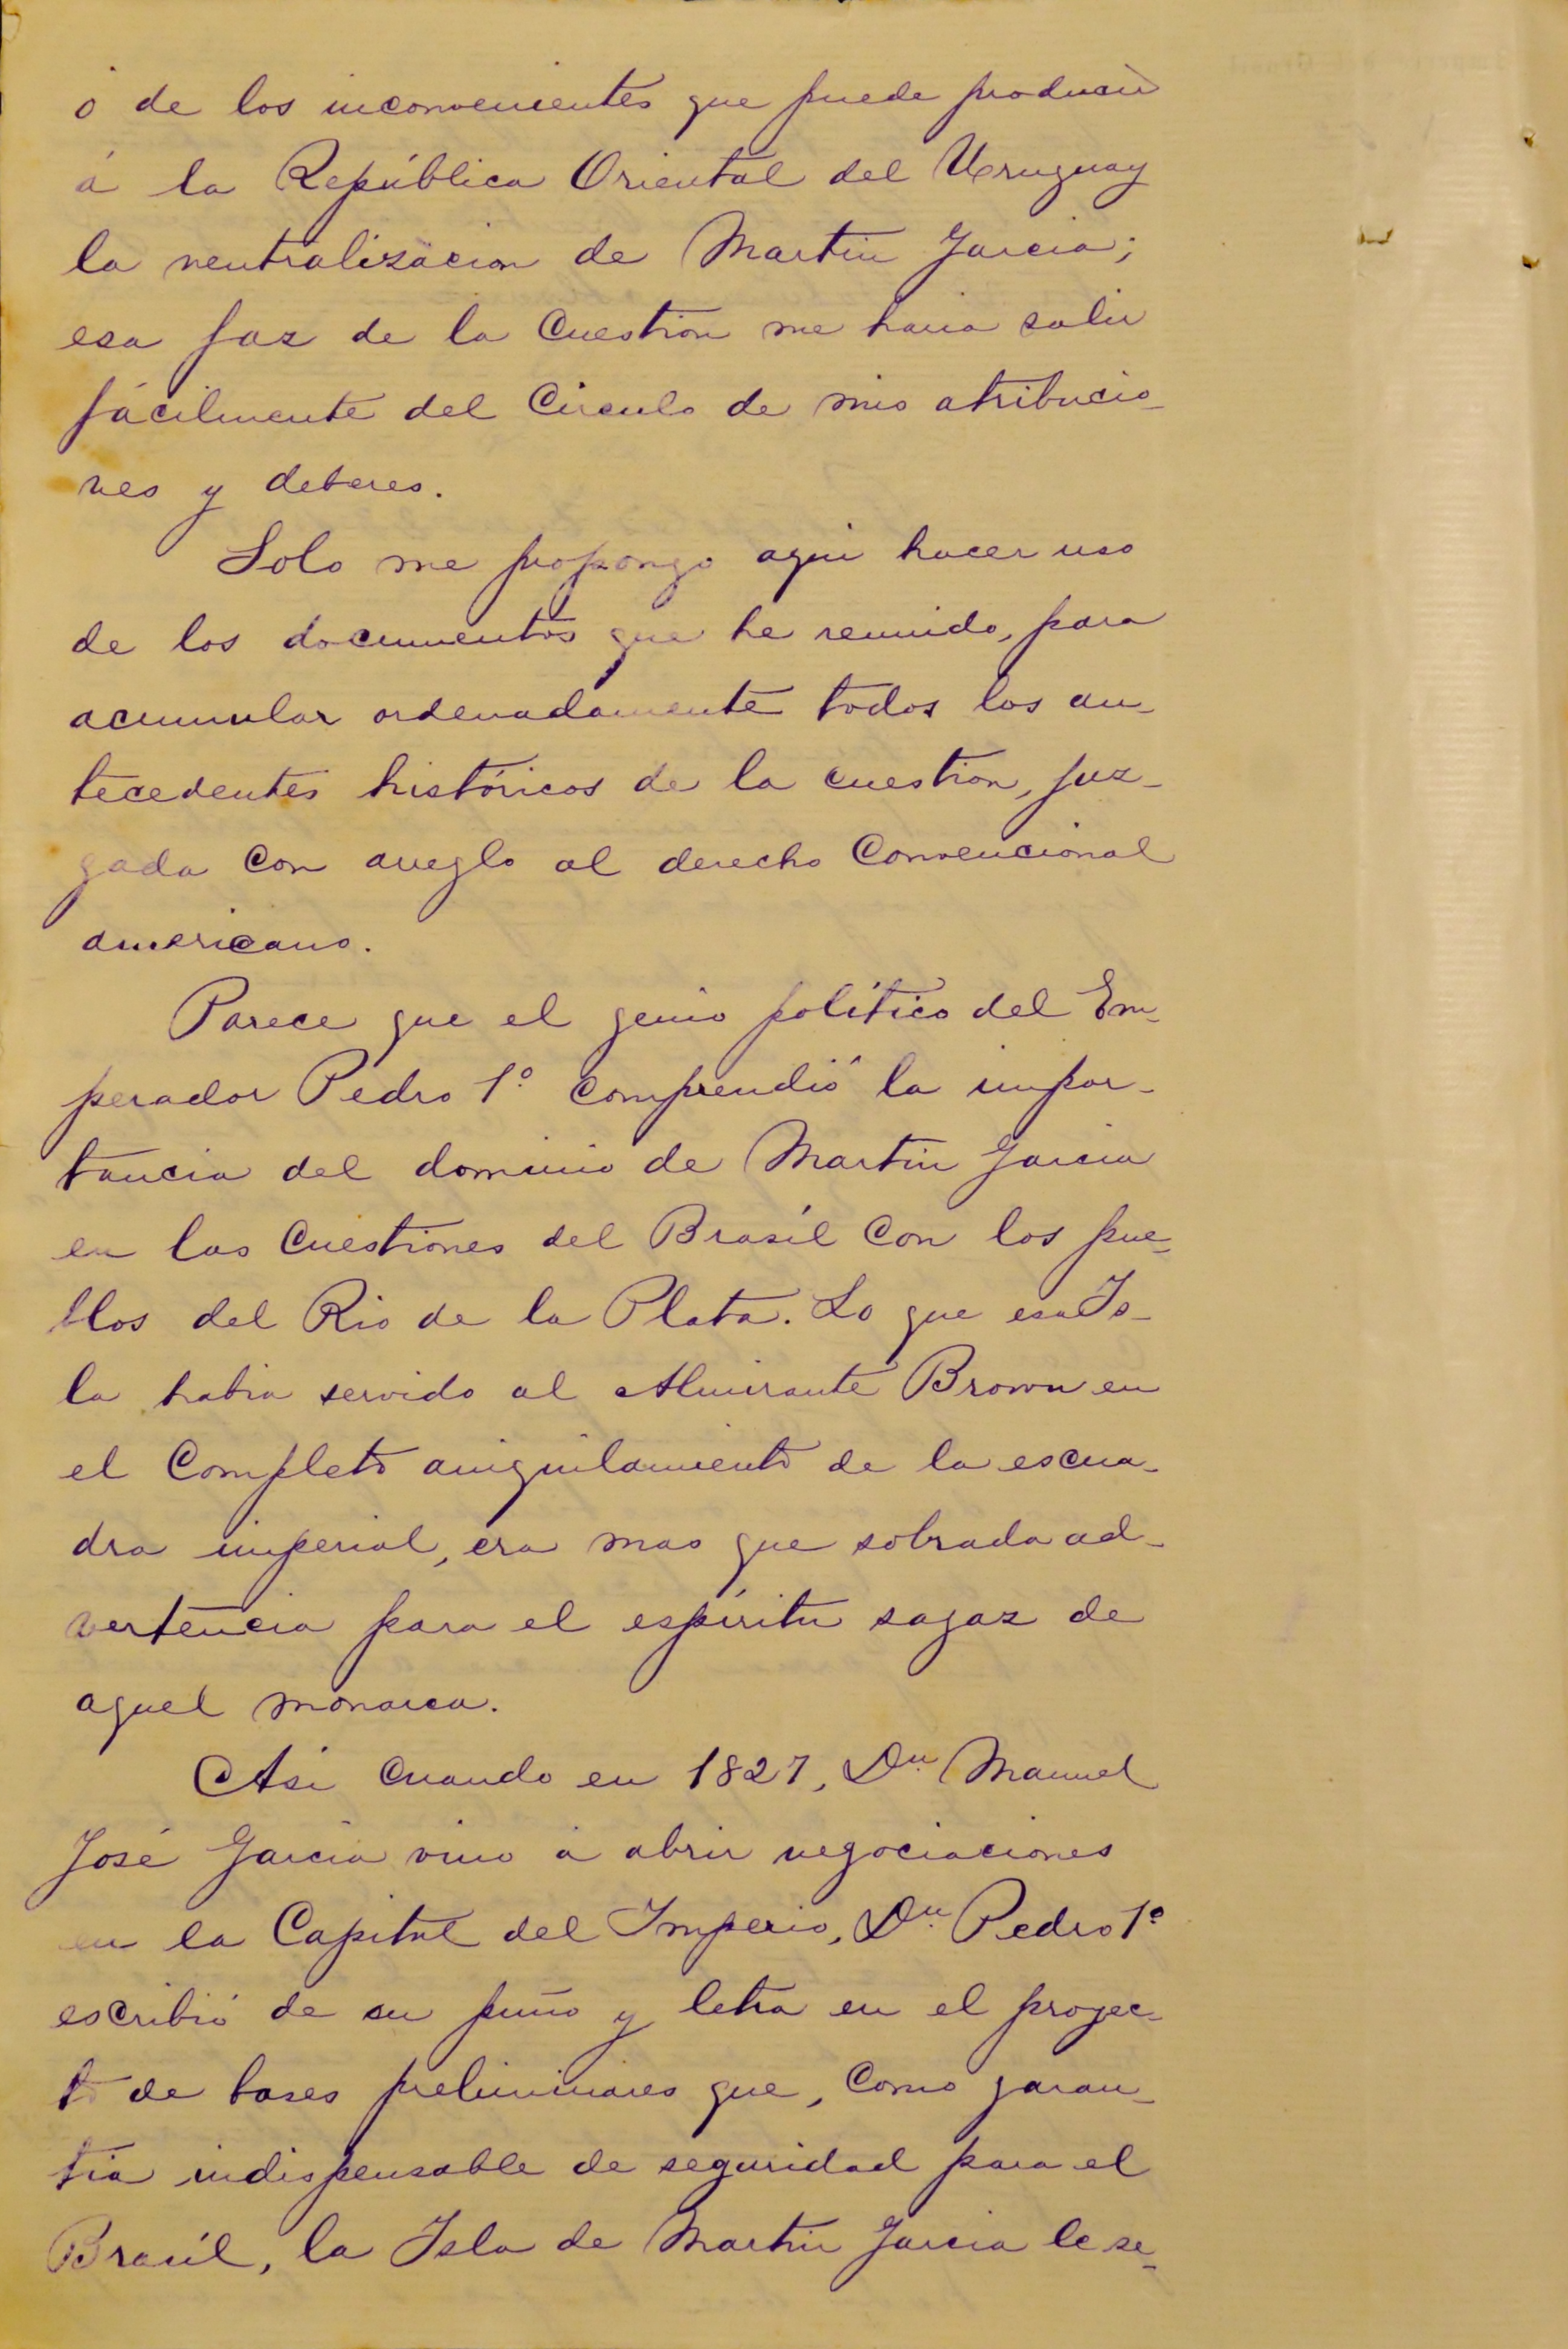 ó de los inconvenientes que puede producir
á la República Oriental del Uruguay
la neutralizacion de Martin Garcia;
esa faz de la Cuestion me haria salir
fácilmente del Circulo de mis atribucio_
nes y deberes.
Solo me propongo aqui hacer uso
de los documentos que he reunido, para
acumular ordenadamente todos los an_
tecedentes históricos de la cuestion, juz_
gada con areglo al derecho Convencional
americano.
Parece que el genio político del Em_
perador Pedro 1º comprendió la impor_
tancia del dominio de Martin Garcia
en las Cuestiones del Brasíl con los pue_
blos del Rio de la Plata. Lo que esa Is_
la habia servido al Almirante Brown en
el Completo aniquilamiento de la escua_
dra imperial, era mas que sobrada ad_
vertencia para el espíritu sagaz de
aquel monarca.
Asi cuando en 1827, Dn. Manuel
José Garcia vino á abrir negociaciones
en la Capital del Imperio, Dn. Pedro 1º
escribió de su puño y letra en el proyec_
to de bases preliminares que, como garan_
tia indispensable de seguridad para el
Brasíl, la Isla de Martin Garcia le se_